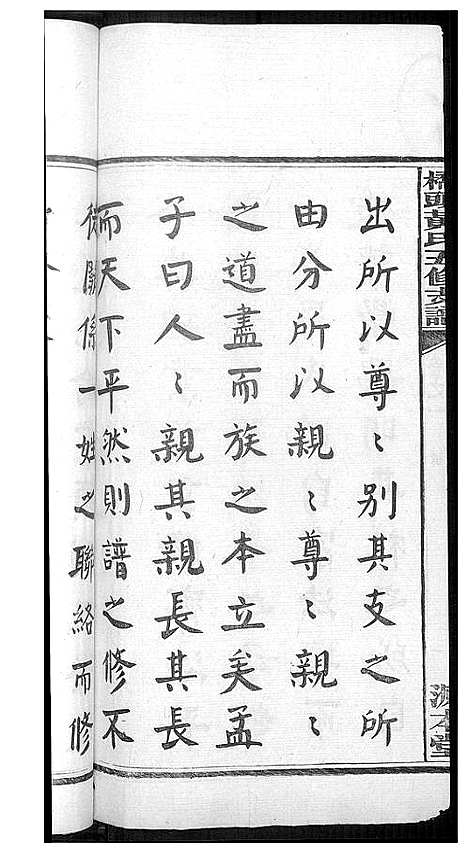 橋頭黃氏五修支譜
出所以尊〻別其支之所
由分所以親〻尊〻親〻
之道盡而族之本立矣孟
子曰人〻親其親長其長
而天下平然則譜之修不
徒關係一姓之聯絡而修